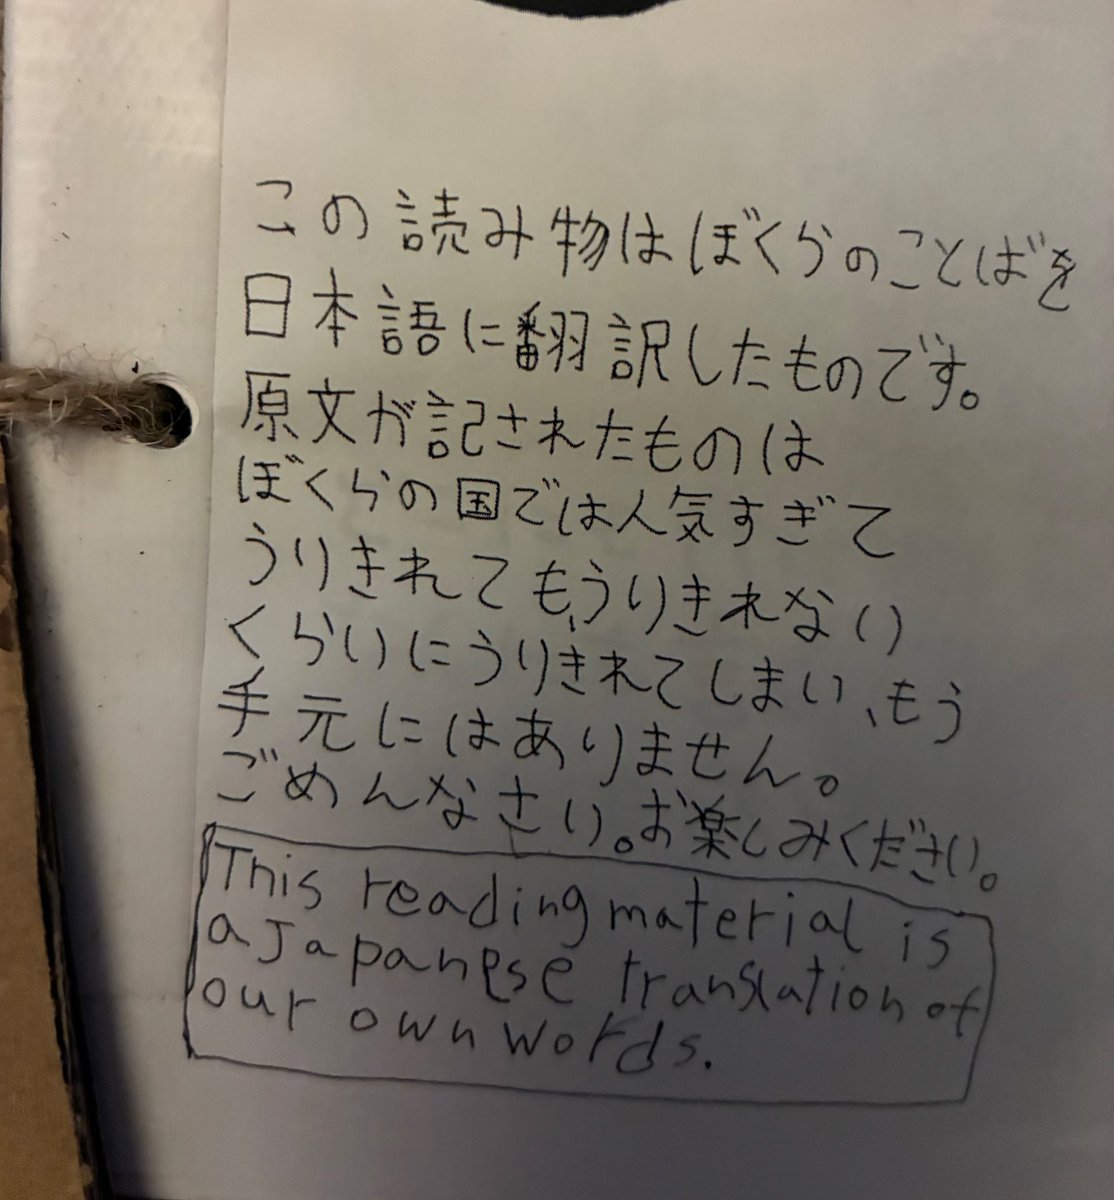 この読み物はぼくらのことばを
日本語に翻訳したものです。
原文が記されたものは
ぼくらの国では人気すぎて
うりきれても、うりきれない
くらいにうりきれてしまい、もう
手元にはありません。
ごめんなさい。お楽しみください。
This reading material is
a Japanese translation of
our own words.